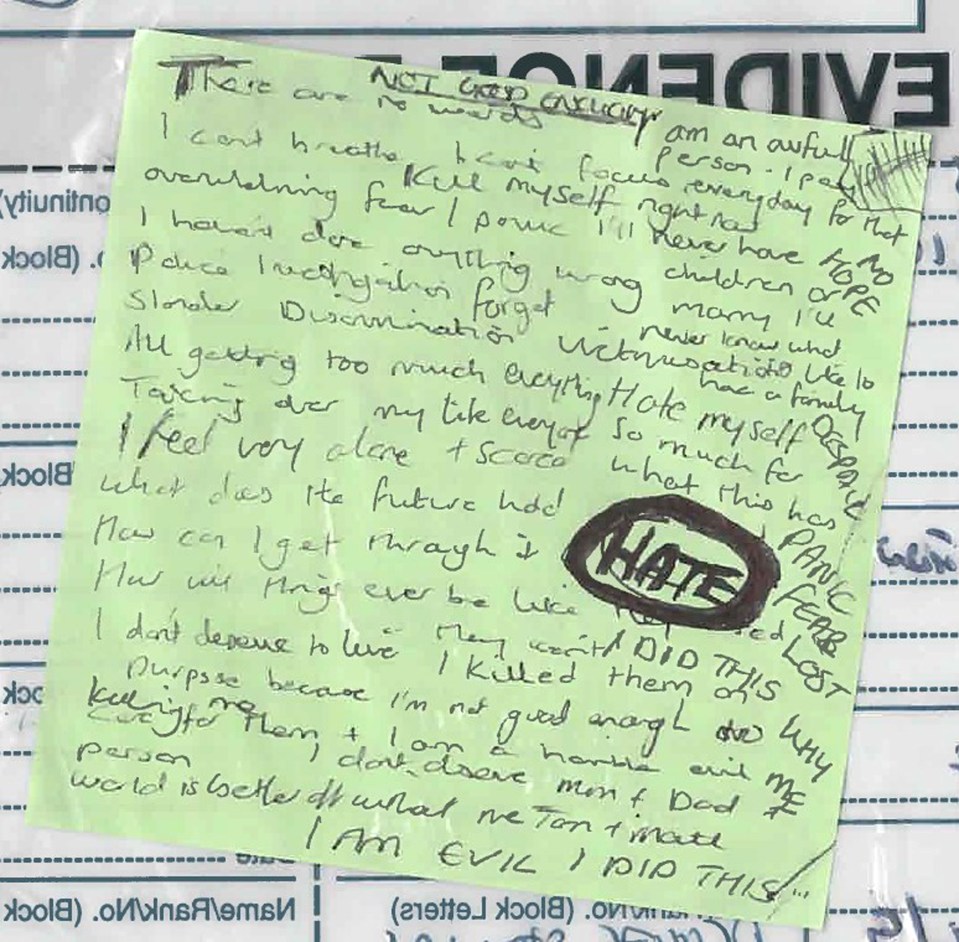 NOT GOOD ENOUGH
There are no words
I can't breathe I can't focus
overwhelming fear I panic
Kill myself right now
I haven't done anything wrong
Police Investigation forget
Slander Discrimination Victimisation
All getting too much everything
Taking over my life everyday
I feel very alone + scared
what does the future hold
How can I get through it
How will things ever be like
I don't deserve to live
I killed them on
purpose because I'm not good enough
to
care for them, + I am a horrible evil
person
I don't deserve Mum + Dad
world is better off without me
I AM EVIL I DID THIS
am an awful
person. I pay
everyday for that
I'll never have
children or
marry I'll
never know what
it's like to
have a family
NO
HOPE
Hate myself
so much for
what this has
DESPAIR
PANIC
FEAR
LOST
HATE
I DID THIS
WHY
ME
killing me
EVIDENCE
(Block
(Block
Name/Rank/No. (Block
Rank/No. (Block Letters)